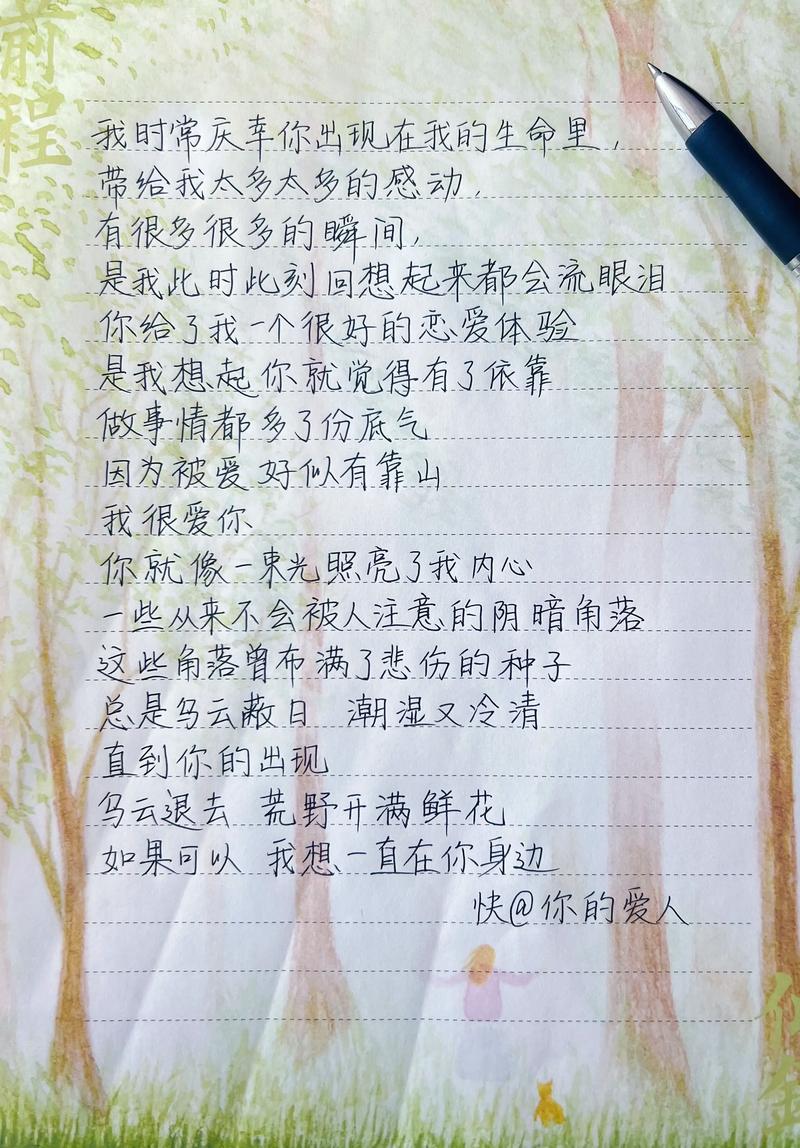 前程
我时常庆幸你出现在我的生命里，
带给我太多太多的感动，
有很多很多的瞬间，
是我此时此刻回想起来都会流眼泪
你给了我一个很好的恋爱体验
是我想起你就觉得有了依靠
做事情都多了份底气
因为被爱好似有靠山
我很爱你
你就像一束光照亮了我内心
一些从来不会被人注意的阴暗角落
这些角落曾布满了悲伤的种子
总是乌云蔽日 潮湿又冷清
直到你的出现
乌云退去 荒野开满鲜花
如果可以 我想一直在你身边
快@你的爱人
似锦